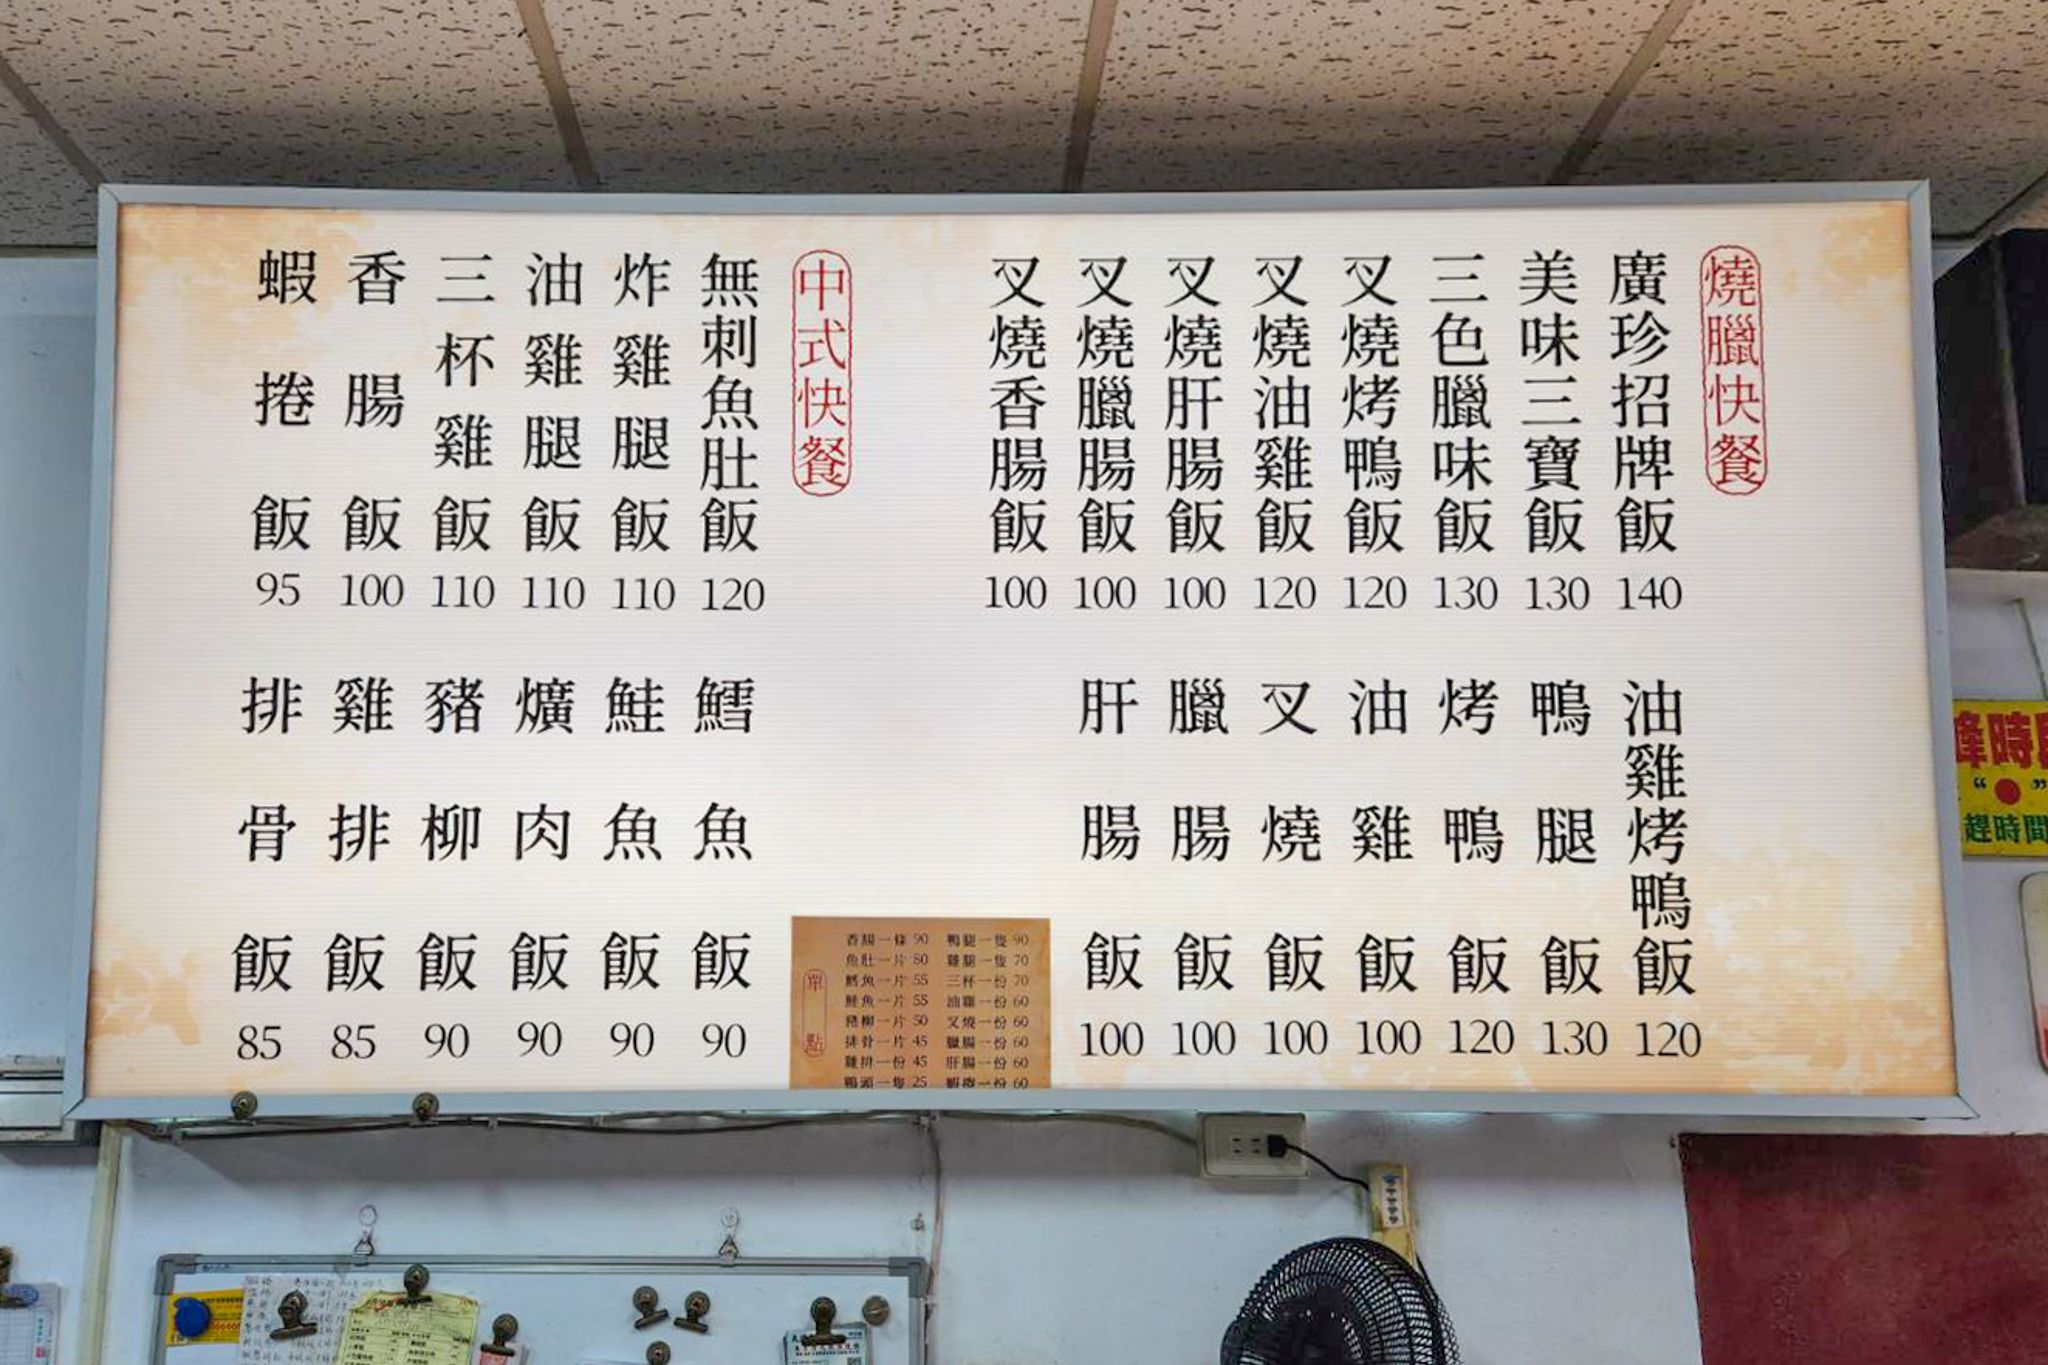 燒臘快餐
廣珍招牌飯 140
美味三寶飯 130
三色臘味飯 130
叉燒烤鴨飯 120
叉燒油雞飯 120
叉燒肝腸飯 100
叉燒臘腸飯 100
叉燒香腸飯 100
油雞烤鴨飯 120
鴨腿飯 130
烤鴨飯 120
油雞飯 100
叉燒飯 100
臘腸飯 100
肝腸飯 100
中式快餐
無刺魚肚飯 120
炸雞腿飯 110
油雞腿飯 110
三杯雞飯 110
香腸飯 100
蝦捲飯 95
鱈魚飯 90
鮭魚飯 90
爌肉飯 90
豬柳飯 90
雞排飯 85
排骨飯 85
單點
香腸一條 90
魚肚一片 80
鱈魚一片 55
鮭魚一片 55
豬柳一片 50
排骨一片 45
雞排一份 45
鴨頭一隻 25
鴨腿一隻 90
雞腿一隻 70
三杯一份 70
油雞一份 60
叉燒一份 60
臘腸一份 60
肝腸一份 60
蝦捲一份 60
趕時間